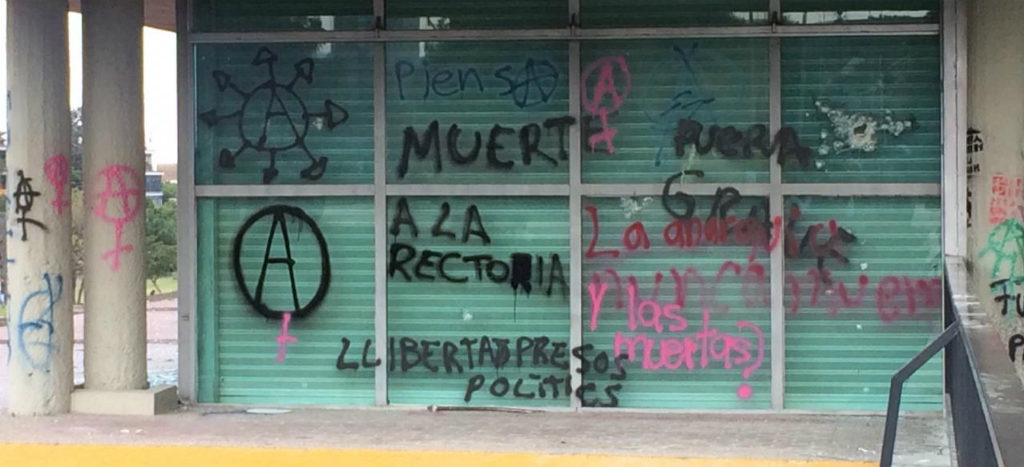 Piensa
MUERTE
A LA
RECTORIA
LLIBERTAD PRESOS
POLÍTICS
FUERA
La anarquía
nunca muere
Y las
muertas?